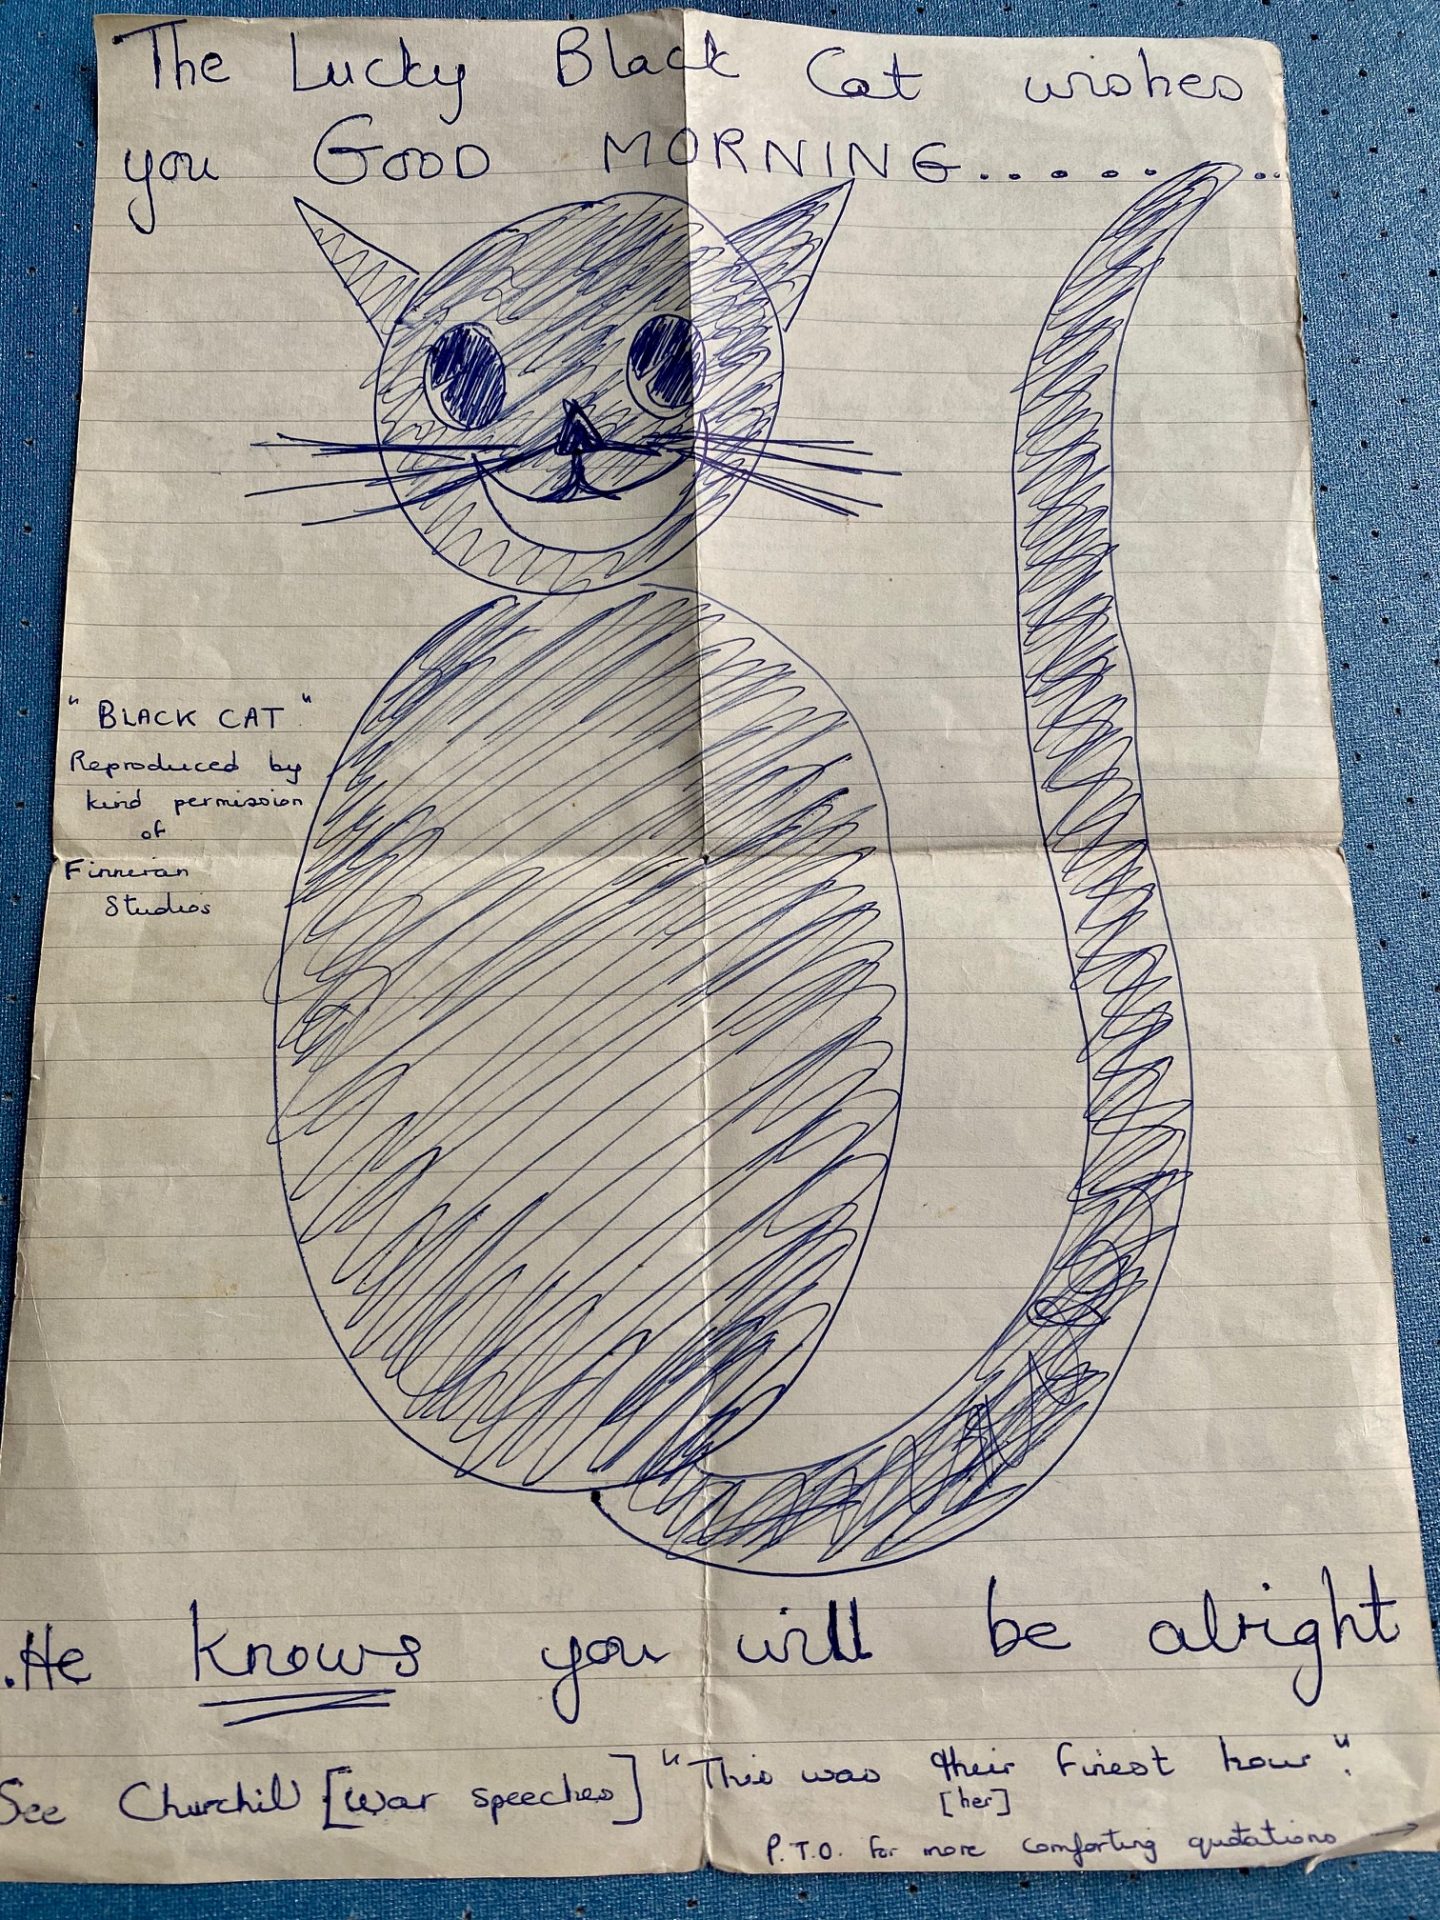 The Lucky Black Cat wishes
you GOOD MORNING.......
"BLACK CAT"
Reproduced by
kind permission
of
Finneran
Studios
.He knows you will be alright
See Churchill [war speeches] "This was their finest hour".
[her]
P.T.O. for more comforting quotations →